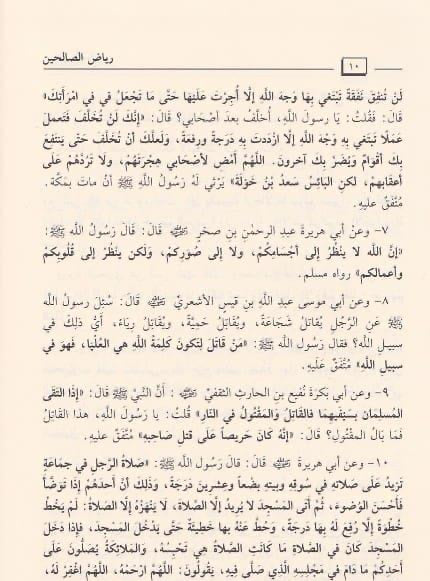 رياض الصالحين
١٠
لَنْ تُنفِقَ نَفَقَةً تَبْتَغي بِهَا وَجهَ اللَّهِ إلَّا أُجِرْتَ عَلَيْهَا حَتَّى مَا تَجْعَلُ في في امْرَأَتِكَ»
قال: فَقُلتُ: يا رسولَ اللَّهِ، أُخلَّفُ بعدَ أصْحَابي؟ قالَ: «إنَّكَ لَنْ تُخَلَّفَ فَتَعملَ
عَمَلًا تَبتَغي بِهِ وَجْهَ اللَّهِ إلَّا ازْدَدتَ بِهِ دَرَجةً ورِفعَةً، وَلَعلَّكَ أنْ تُخَلَّفَ حَتَّى يَنتَفِعَ
بِكَ أقْوَامٌ وَيُضَرَّ بِكَ آخرونَ. اللَّهُمَّ أمْضِ لأصْحَابي هِجْرَتَهُمْ، ولا تَرُدَّهُمْ عَلَى
أعقَابِهمْ، لكنِ البَائِسُ سَعدُ بْنُ خَوْلَةَ» يَرْثي لَهُ رَسُولُ اللَّهِ ﷺ أنْ ماتَ بمَكَّة.
مُتَّفَقٌ عليهِ.
٧- وعنْ أبي هريرةَ عبدِ الرحمنِ بنِ صخرٍ رضي الله عنه قالَ: قالَ رَسُولُ اللَّهِ ﷺ:
«إنَّ اللَّهَ لا يَنْظُرُ إلى أجْسَامِكُمْ، ولا إلى صُوَرِكمْ، وَلَكن يَنظُرُ إلى قُلُوبِكُمْ
وأعمالكم» رواه مسلم.
٨- وعنْ أبي موسى عبدِ اللَّهِ بنِ قيسٍ الأشعريِّ رضي الله عنه قالَ: سُئِلَ رسولُ اللَّهِ
ﷺ عَنِ الرَّجُلِ يُقاتلُ شَجَاعَةً، ويُقَاتِلُ حَمِيَّةً، ويُقَاتِلُ رِيَاءً، أيُّ ذلِكَ في
سبيلِ اللَّهِ؟ فقالَ رسولُ اللَّهِ ﷺ: «مَنْ قَاتَلَ لِتَكونَ كَلِمَةُ اللَّهِ هي العُلْيَا، فَهوَ في
سبيلِ اللَّهِ» مُتَّفَقٌ عَلَيهِ.
٩- وعن أبي بَكرَةَ نُفيعِ بنِ الحارثِ الثقفيِّ رضي الله عنه: أنَّ النَّبيَّ ﷺ قالَ: «إذَا التَقَى
المُسلِمَانِ بسَيْفَيهِمَا فالقَاتِلُ وَالمَقْتُولُ في النّارِ» قُلتُ: يا رَسولَ اللَّهِ، هذا القَاتِلُ
فَمَا بَالُ المَقْتُولِ؟ قالَ: «إنَّهُ كَانَ حَريصاً عَلَى قتلِ صَاحِبِهِ» مُتَّفَقٌ عليهِ.
١٠- وعن أبي هريرةَ رضي الله عنه قالَ: قالَ رَسُولُ اللَّهِ ﷺ: «صَلاةُ الرَّجلِ في جمَاعَةٍ
تَزيدُ عَلَى صَلاتهِ في سُوقهِ وبيتهِ بضْعاً وعشرينَ دَرَجَةً، وَذلِكَ أنَّ أحدَهُمْ إذا تَوَضَّأَ
فَأحْسَنَ الوُضوءَ، ثُمَّ أتَى المَسْجِدَ لا يُريدُ إلَّا الصَّلاةَ، لَا يَنْهَزُهُ إلَّا الصَّلاةُ: لَمْ يَخْطُ
خُطْوَةً إلَّا رُفِعَ لَهُ بِهَا دَرجَةٌ، وَحُطَّ عَنْهُ بها خَطِيئَةٌ حَتَّى يَدْخُلَ المَسْجِدَ، فإذا دَخَلَ
المَسْجِدَ كَانَ في الصَّلاةِ مَا كَانَتِ الصَّلاةُ هِي تَحْبِسُهُ، وَالمَلائِكَةُ يُصَلُّونَ عَلَى
أحَدِكُمْ مَا دَامَ في مَجْلِسِهِ الَّذي صَلَّى فِيهِ، يَقُولُونَ: اللَّهُمَّ ارْحَمْهُ، اللَّهُمَّ اغْفِرْ لَهُ،